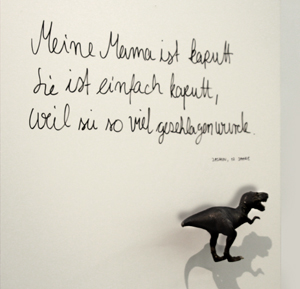 Meine Mama ist kaputt
Sie ist einfach kaputt,
weil sie so viel geschlagen wurde.